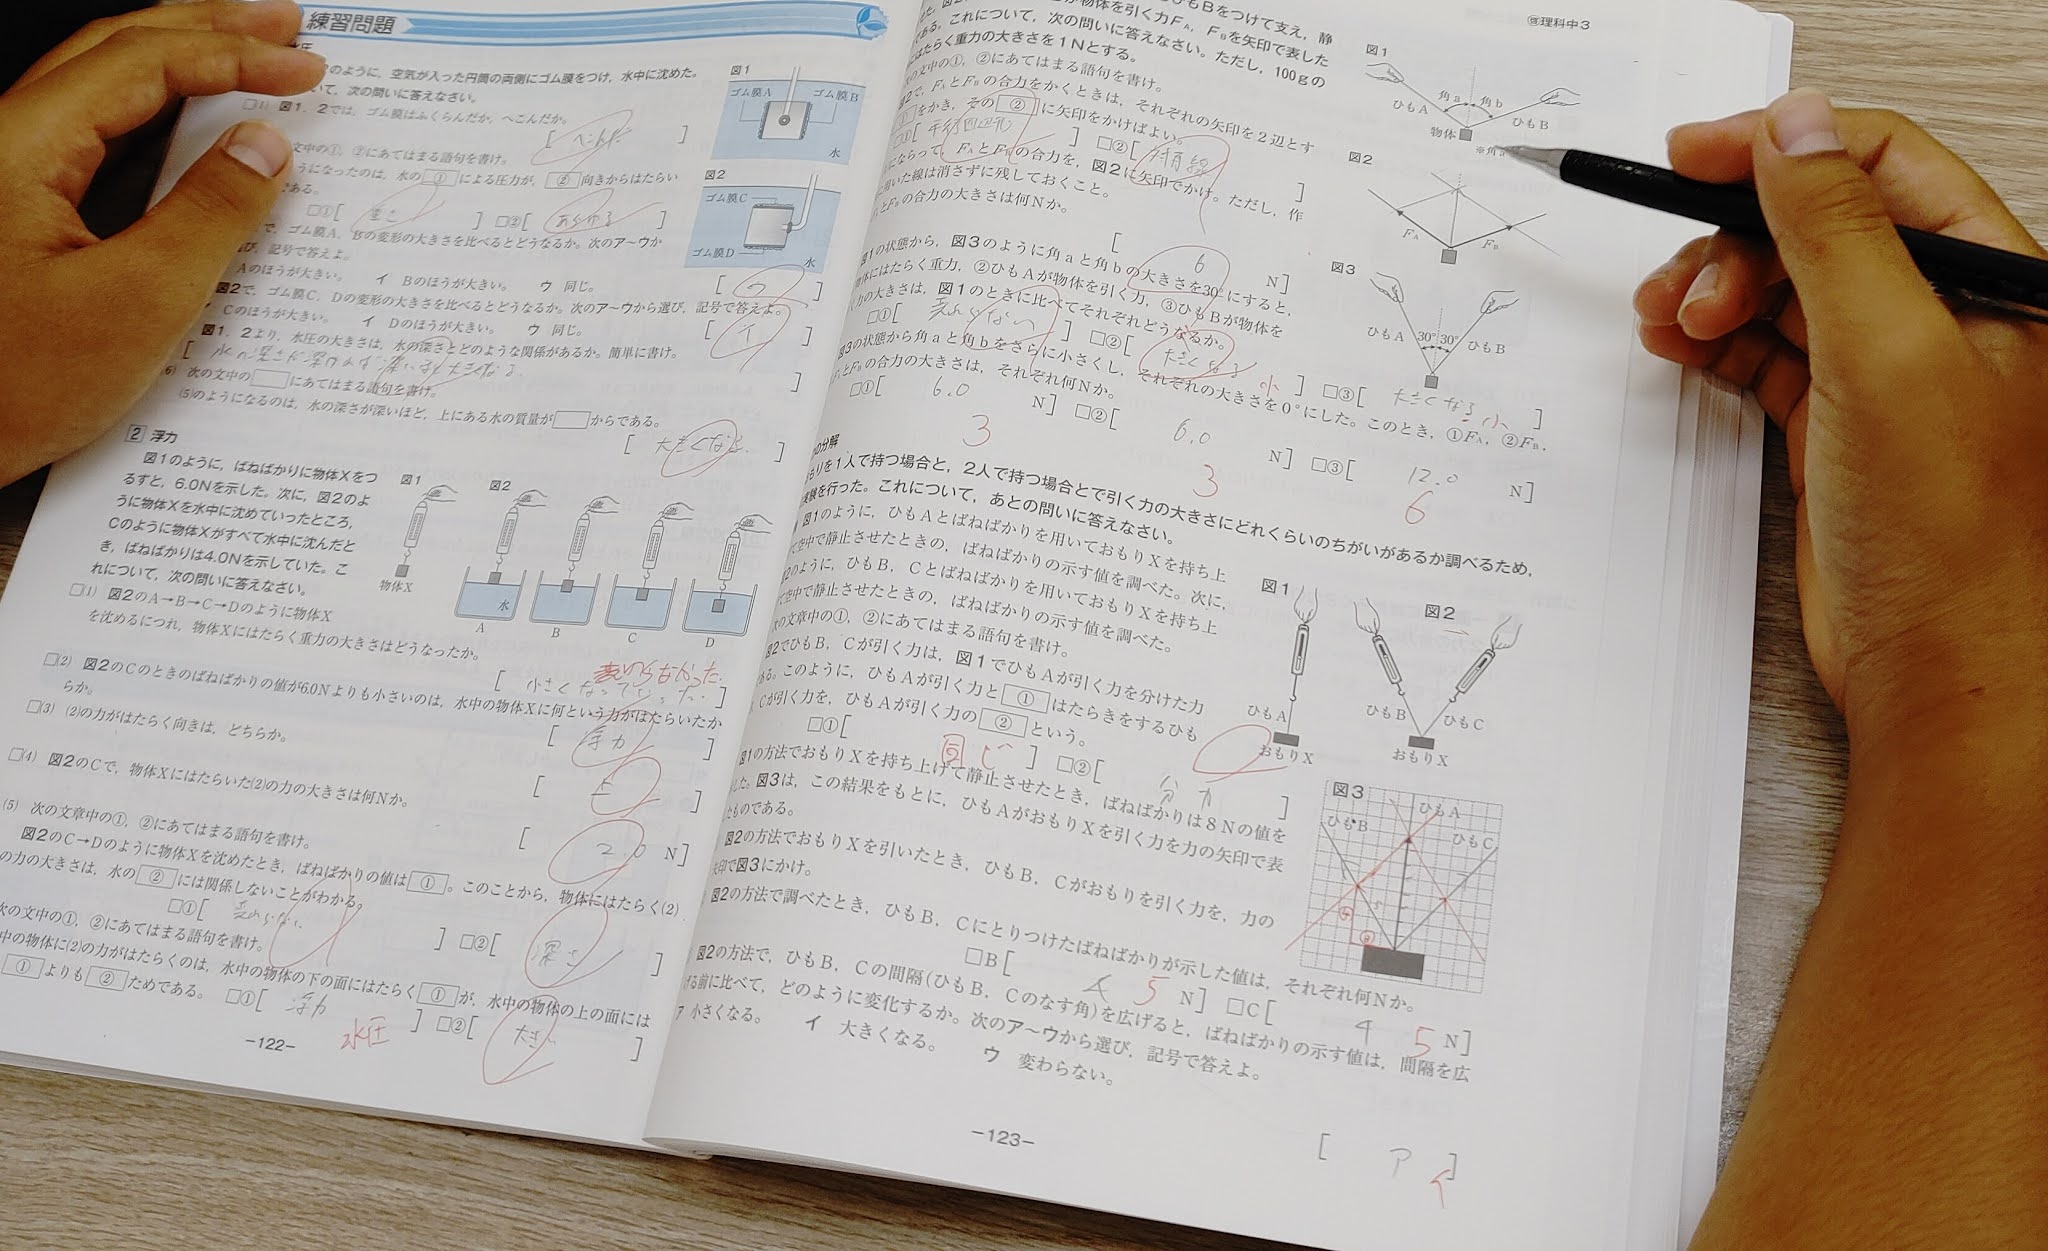 練習問題
水圧
のように，空気が入った円筒の両側にゴム膜をつけ，水中に沈めた。
いて，次の問いに答えなさい。
□(1) 図1，2では，ゴム膜はふくらんだか，へこんだか。
[ へこんだ ]
文中の①，②にあてはまる語句を書け。
うになったのは，水の ① による圧力が， ② 向きからはたらい
である。
□①[ 重さ ] □②[ あらゆる ]
で，ゴム膜A，Bの変形の大きさを比べるとどうなるか。次のア〜ウか
び，記号で答えよ。
Aのほうが大きい。 イ Bのほうが大きい。 ウ 同じ。
[ ウ ]
図2で，ゴム膜C，Dの変形の大きさを比べるとどうなるか。次のア〜ウから選び，記号で答えよ。
Cのほうが大きい。 イ Dのほうが大きい。 ウ 同じ。
[ イ ]
図1，2より，水圧の大きさは，水の深さとどのような関係があるか。簡単に書け。
6) 次の文中の にあてはまる語句を書け。
(5)のようになるのは，水の深さが深いほど，上にある水の質量が からである。
[ 大きくなる ]
図1
ゴム膜A
ゴム膜B
水
図2
ゴム膜C
ゴム膜D
水
2 浮力
図1のように，ばねばかりに物体Xをつ
るすと，6.0Nを示した。次に，図2のよ
うに物体Xを水中に沈めていったところ，
Cのように物体Xがすべて水中に沈んだと
き，ばねばかりは4.0Nを示していた。こ
れについて，次の問いに答えなさい。
図1
物体X
図2
水
A
B
C
D
□(1) 図2のA→B→C→Dのように物体X
を沈めるにつれ，物体Xにはたらく重力の大きさはどうなったか。
[ 小さくなっていった。 ]
変わらなかった。
□(2) 図2のCのときのばねばかりの値が6.0Nよりも小さいのは，水中の物体Xに何という力がはたらいたか
らか。
[ 浮力 ]
□(3) (2)の力がはたらく向きは，どちらか。
[ 上 ]
□(4) 図2のCで，物体Xにはたらいた(2)の力の大きさは何Nか。
[ 2.0 N]
(5) 次の文章中の①，②にあてはまる語句を書け。
図2のC→Dのように物体Xを沈めたとき，ばねばかりの値は ① 。このことから，物体にはたらく(2)
の力の大きさは，水の ② には関係しないことがわかる。
□①[ 変わらない ] □②[ 深さ ]
次の文中の①，②にあてはまる語句を書け。
中の物体に(2)の力がはたらくのは，水中の物体の下の面にはたらく ① が，水中の物体の上の面には
① よりも ② ためである。 □①[ 浮力 ] □②[ 大きい ]
水圧
-122-
理科中3
びもBをつけて支え，静
物体を引く力FA，FBを矢印で表した
である。これについて，次の問いに答えなさい。ただし，100gの
はたらく重力の大きさを1Nとする。
次の文中の①，②にあてはまる語句を書け。
図2で，FAとFBの合力をかくときは，それぞれの矢印を2辺とす
をかき，その ② に矢印をかけばよい。
□①[ 平行四辺形 ] □②[ 対角線 ]
にならって，FAとFBの合力を，図2に矢印でかけ。ただし，作
用いた線は消さずに残しておくこと。
とFBの合力の大きさは何Nか。
[ 6 N]
図1
角a
角b
ひもA
ひもB
物体
図2
FA
FB
図3
ひもA
30°
30°
ひもB
図1の状態から，図3のように角aと角bの大きさを30°にすると，
体にはたらく重力，②ひもAが物体を引く力，③ひもBが物体を
力の大きさは，図1のときに比べてそれぞれどうなるか。
□①[ 変わらない ] □②[ 大きくなる ] □③[ 大きくなる ]
小
小
図3の状態から角aと角bをさらに小さくし，それぞれの大きさを0°にした。このとき，①FA，②FB，
FBの合力の大きさは，それぞれ何Nか。
□①[ 6.0 N] □②[ 6.0 N] □③[ 12.0 N]
3
3
6
の分解
もりを1人で持つ場合と，2人で持つ場合とで引く力の大きさにどれくらいのちがいがあるか調べるため，
実験を行った。これについて，あとの問いに答えなさい。
図1のように，ひもAとばねばかりを用いておもりXを持ち上
て空中で静止させたときの，ばねばかりの示す値を調べた。次に，
2のように，ひもB，Cとばねばかりを用いておもりXを持ち上
て空中で静止させたときの，ばねばかりの示す値を調べた。
次の文章中の①，②にあてはまる語句を書け。
図2でひもB，Cが引く力は，図1でひもAが引く力を分けた力
ある。このように，ひもAが引く力と ① はたらきをするひも
Cが引く力を，ひもAが引く力の ② という。
□①[ 同じ ] □②[ 分力 ]
図1
ひもA
おもりX
図2
ひもB
ひもC
おもりX
図1の方法でおもりXを持ち上げて静止させたとき，ばねばかりは8Nの値を
した。図3は，この結果をもとに，ひもAがおもりXを引く力を力の矢印で表
たものである。
図2の方法でおもりXを引いたとき，ひもB，Cがおもりを引く力を，力の
矢印で図3にかけ。
図2の方法で調べたとき，ひもB，Cにとりつけたばねばかりが示した値は，それぞれ何Nか。
□B[ 4 5 N] □C[ 4 5 N]
図3
ひもA
ひもB
ひもC
図2の方法で，ひもB，Cの間隔(ひもB，Cのなす角)を広げると，ばねばかりの示す値は，間隔を広
げる前に比べて，どのように変化するか。次のア〜ウから選び，記号で答えよ。
ア 小さくなる。 イ 大きくなる。 ウ 変わらない。
[ ア ]
イ
-123-